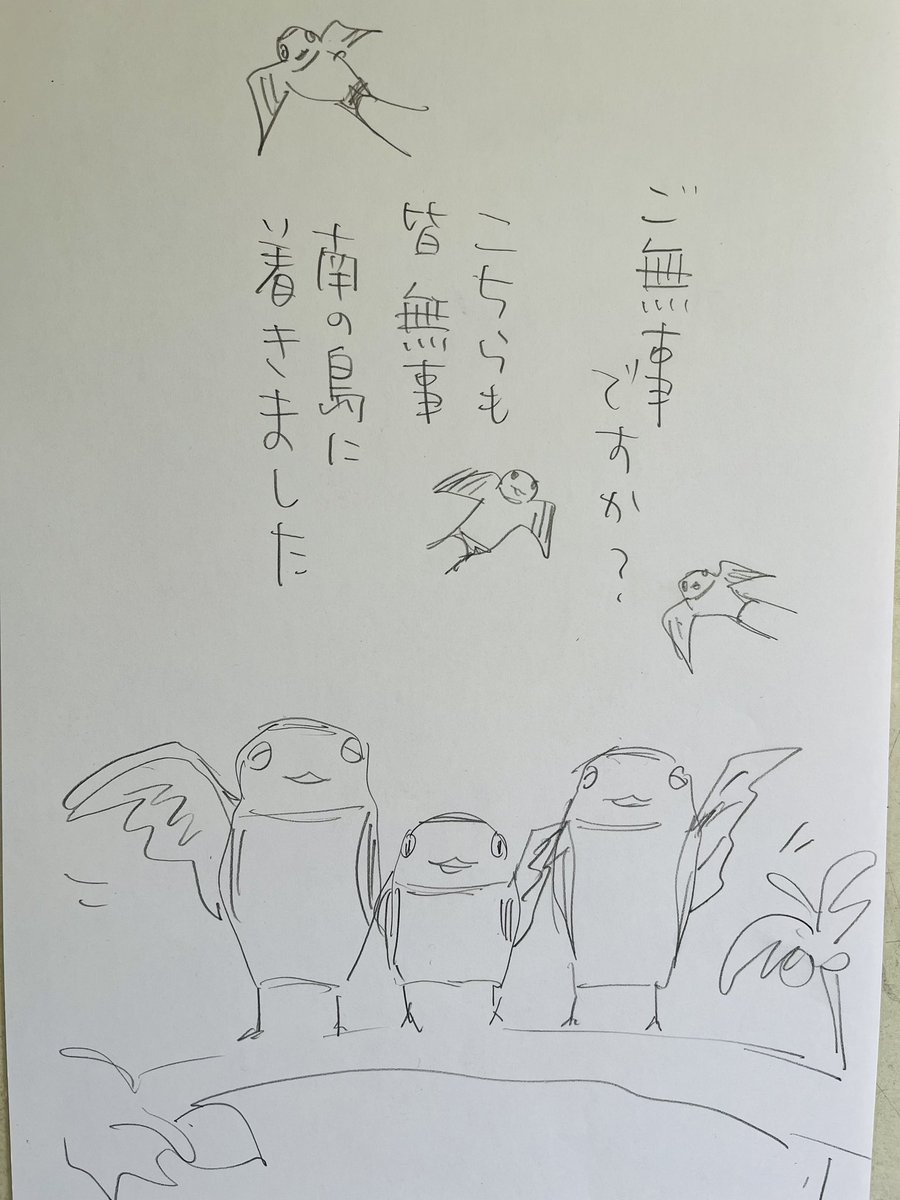 ご無事
ですか?
こちらも
皆無事
南の島に
着きました